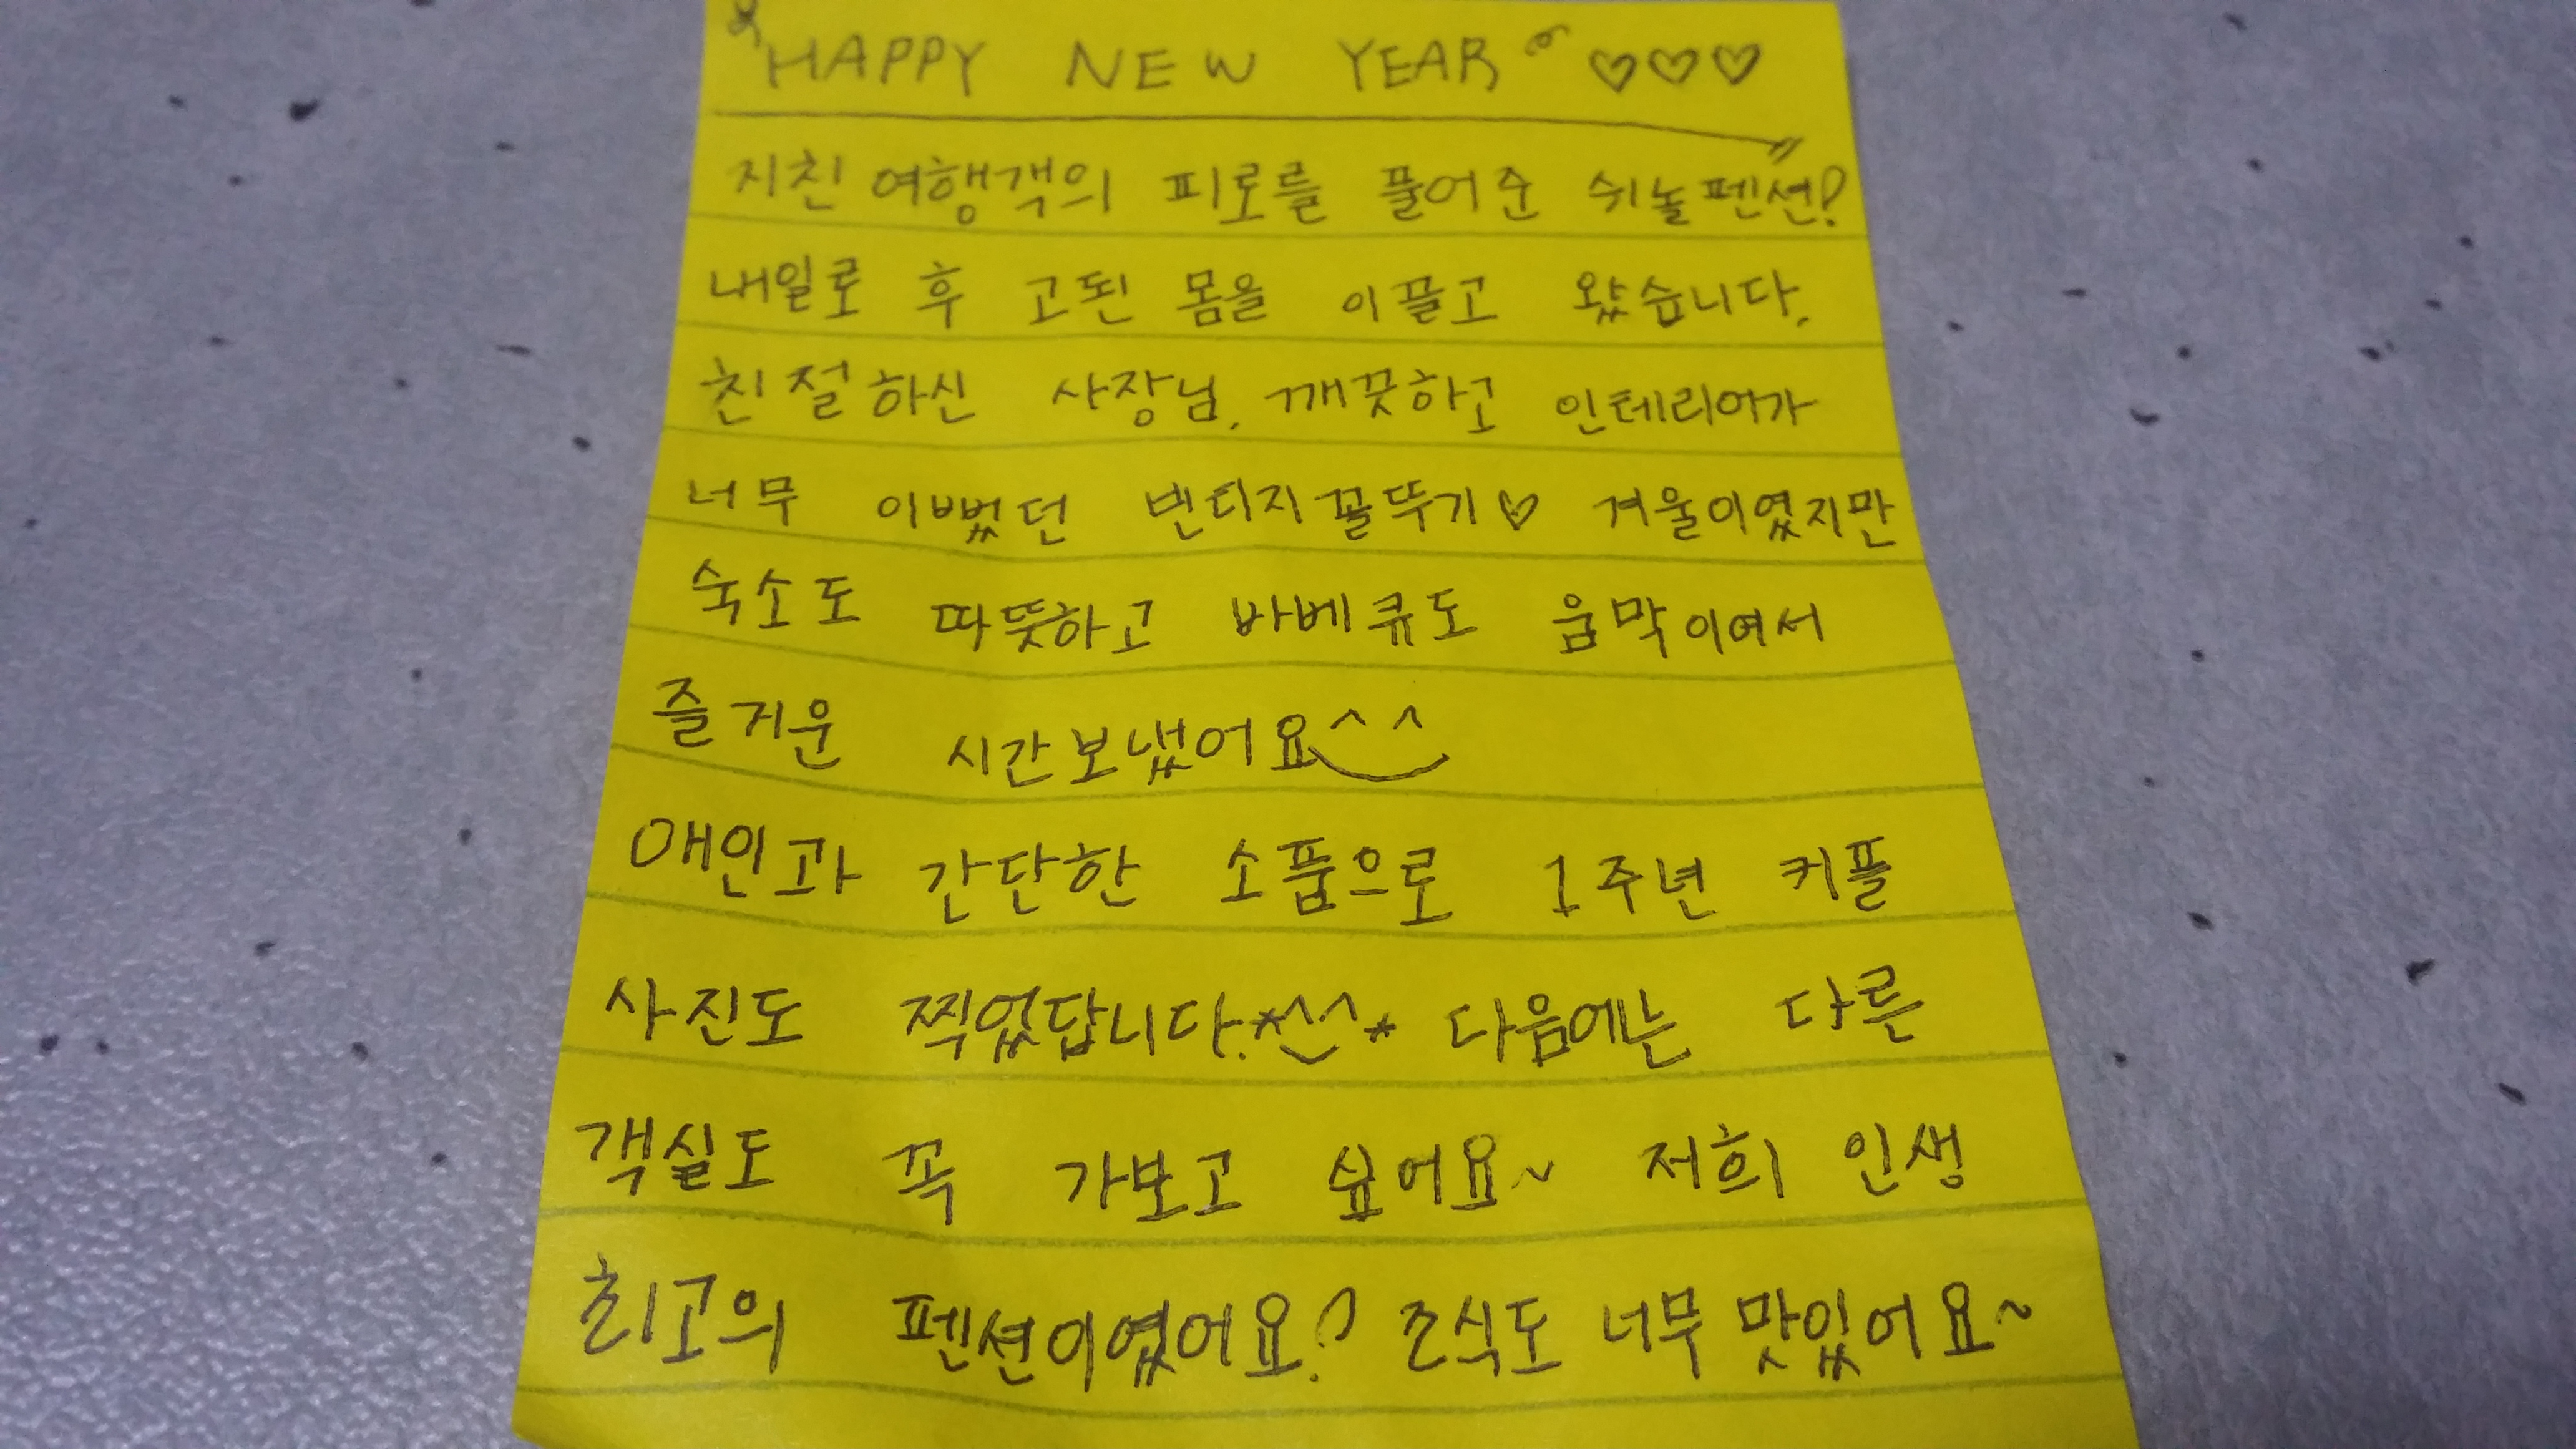 HAPPY NEW YEAR ♡♡♡
지친 여행객의 피로를 풀어준 쉬놀펜션!
내일로 후 고된 몸을 이끌고 왔습니다.
친절하신 사장님, 깨끗하고 인테리어가
너무 이뻤던 빈티지꼴뚜기♡ 겨울이였지만
숙소도 따뜻하고 바베큐도 움막이여서
즐거운 시간보냈어요^^
애인과 간단한 소품으로 1주년 커플
사진도 찍었답니다.*^^* 다음에는 다른
객실도 꼭 가보고 싶어요~ 저희 인생
최고의 펜션이였어요! 조식도 너무 맛있어요~